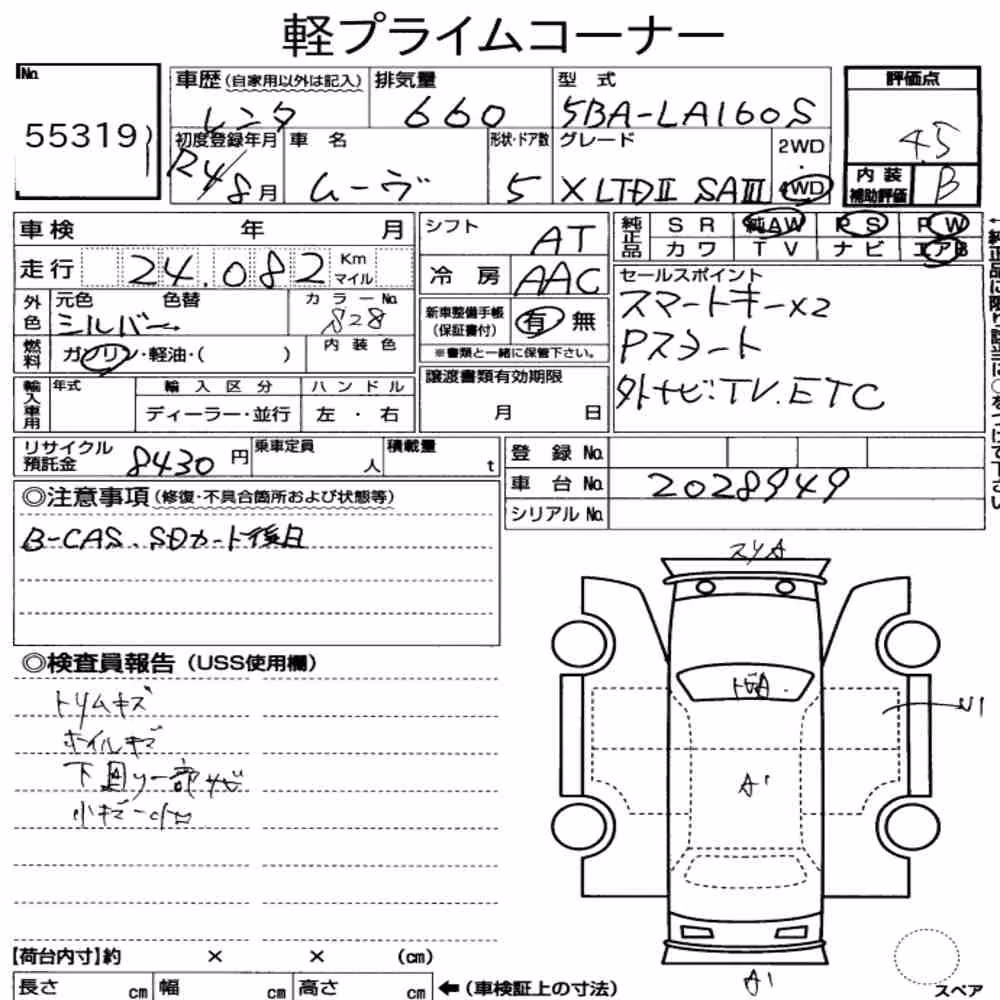 軽プライムコーナー
No. 55319
車歴(自家用以外は記入) レンタ
排気量 660
型式 5BA-LA160S
評価点 4.5
初度登録年月 R4/8月
車名 ムーヴ
形状・ドア数 5
グレード XLTDⅡ SAⅢ
2WD
・
4WD
内装補助評価 B
車検 年 月
シフト AT
純正品 SR 純AW PS PW
カワ TV ナビ エアB
走行 24.082 Km マイル
冷房 AAC
セールスポイント
スマートキーx2
Pスタート
外ナビ.TV.ETC
外色 元色 シルバー 色替
カラーNo. S28
新車整備手帳(保証書付) 有 無
※書類と一緒に保管下さい。
燃料 ガソリン・軽油・( )
内装色
輸入車用 年式 輸入区分 ハンドル
ディーラー・並行 左・右
譲渡書類有効期限
月 日
←純正品に限り該当に○をつけて下さい
リサイクル預託金 8430円
乗車定員 人
積載量 t
登録No.
車台No. 2028949
シリアルNo.
◎注意事項(修復・不具合箇所および状態等)
B-CAS.SDカード後日
◎検査員報告(USS使用欄)
トリムキズ
ホイルキズ
下回り一部サビ
小キズ小凹
スリA
トビA.
U1
A1
A1
スペア
【荷台内寸】約 × × (cm)
長さ cm 幅 cm 高さ cm ←(車検証上の寸法)